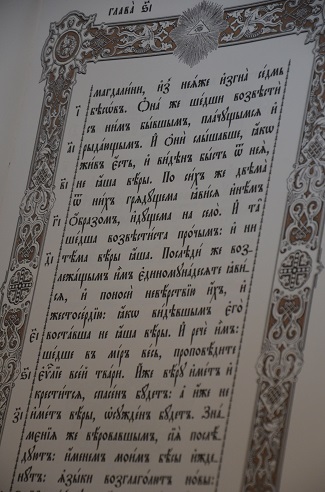 глава̀ ѕ҃і
магдали́ни, и҆з̾ нея́же и҆згна̀ се́дмь
і҃ бѣсѡ́въ. Ѻ҆на́ же ше́дши возвѣстѝ
съ ни́мъ бы́вшымъ, пла́чущымся и҆
а҃і рыда́ющымъ. И҆ ѻ҆нѝ слы́шавше, ꙗ҆́кѡ
жи́въ є҆́сть, и҆ ви́дѣнъ бы́сть ѿ нея̀,
в҃і не ꙗ҆́ша вѣ́ры. По си́хъ же двѣма̀
ѿ ни́хъ гряду́щема ꙗ҆ви́ся и҆нѣ́мъ
г҃і ѻ҆́бразомъ, и҆ду́щема на село̀. И҆ та̑
ше́дша возвѣсти́ста про́чымъ: и҆ ни
д҃і тѣ́ма вѣ́ры ꙗ҆́ша. Послѣди́ же воз-
лежа́щымъ и҆̀мъ є҆диномуна́десяте ꙗ҆ви́-
ся, и҆ поносѝ невѣ́рствїю и҆́хъ, и҆
жестосе́рдїю: ꙗ҆́кѡ ви́дѣвшымъ є҆го̀
є҃і воста́вша не ꙗ҆́ша вѣ́ры. И҆ речѐ и҆̀мъ:
ше́дше въ мі́ръ ве́сь, проповѣ́дите
ѕ҃і є҆ѵⷢ҇лїе все́й тва́ри. И҆́же вѣ́ру и҆́метъ и҆
крести́тся, спасе́нъ бу́детъ: а҆ и҆́же не
з҃і и҆́метъ вѣ́ры, ѡ҆сужде́нъ бу́детъ. Зна́-
менїя же вѣ́ровавшымъ, сїя̑ послѣ́-
дуютъ: и҆́менемъ мои́мъ бѣ́сы и҆жде-
ну́тъ: ꙗ҆зы̑ки возглаго́лютъ но́вы: